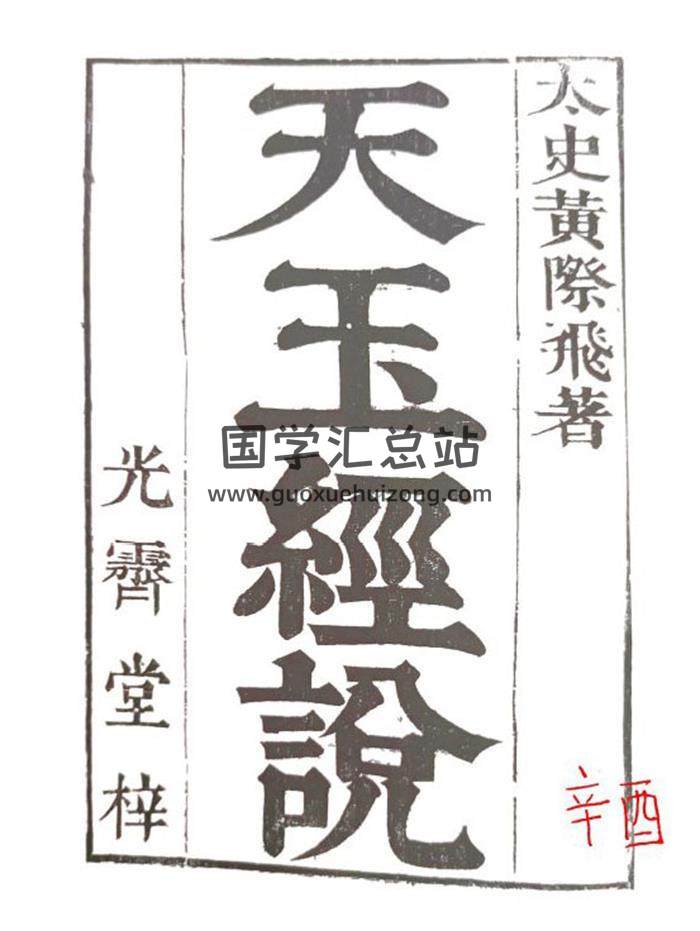 太史黃際飛著
天玉經說
光霽堂梓
国学汇总站
www.guoxuehuizong.com
辛酉